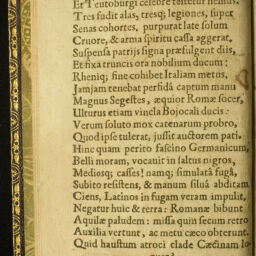 Et Teutoburgi celebre teſtetur nemus,
Tres fudit alas, tresq; legiones, ſuper
Senas cohortes, purpurat late ſolum
Cruore, & arma ſpiritu caſſa aggerat,
Suspenſa patrijs ſigna præfulgent diis,
Et fixa truncis ora nobilium ducum:
Rheniq; ſine cohibet Italiam metus,
Jamjam tenebat perfidâ captum manu
Magnus Segeſtes, æquior Romæ ſocer,
Ulturus etiam vincla Bojocali ducis:
Verum ſoluto mox catenarum probro,
Quod ipſe tulerat, juſſit auctorem pati.
Hinc quam perito faſcino Germanicum,
Belli moram, vocavit in ſaltus nigros,
Mediosq; caſſes! namq; ſimulatâ fugâ,
Subito reſiſtens, & manum ſilvâ abditam
Ciens, Latinos in fugam veram impulit.
Negatur huic & terra: Romanæ bibunt
Aquilæ paludem: miſſa quin ſecum retro
Auxilia vertunt, ac metu cæco obterunt.
Quid hauſtum atroci clade Cæcinam lo-